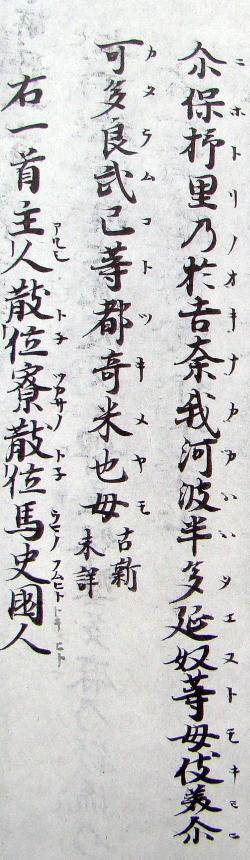 尒保杼里乃於吉奈我河波半多延奴等母伎美尒
ニホトリノオキナカカハハタエヌトモキミニ
可多良武己等都奇米也母
カタラムコトツキメヤモ
古新
未詳
右一首主人散位寮散位馬史國人
アルシ トネ ツカサノ トネ フムヒト